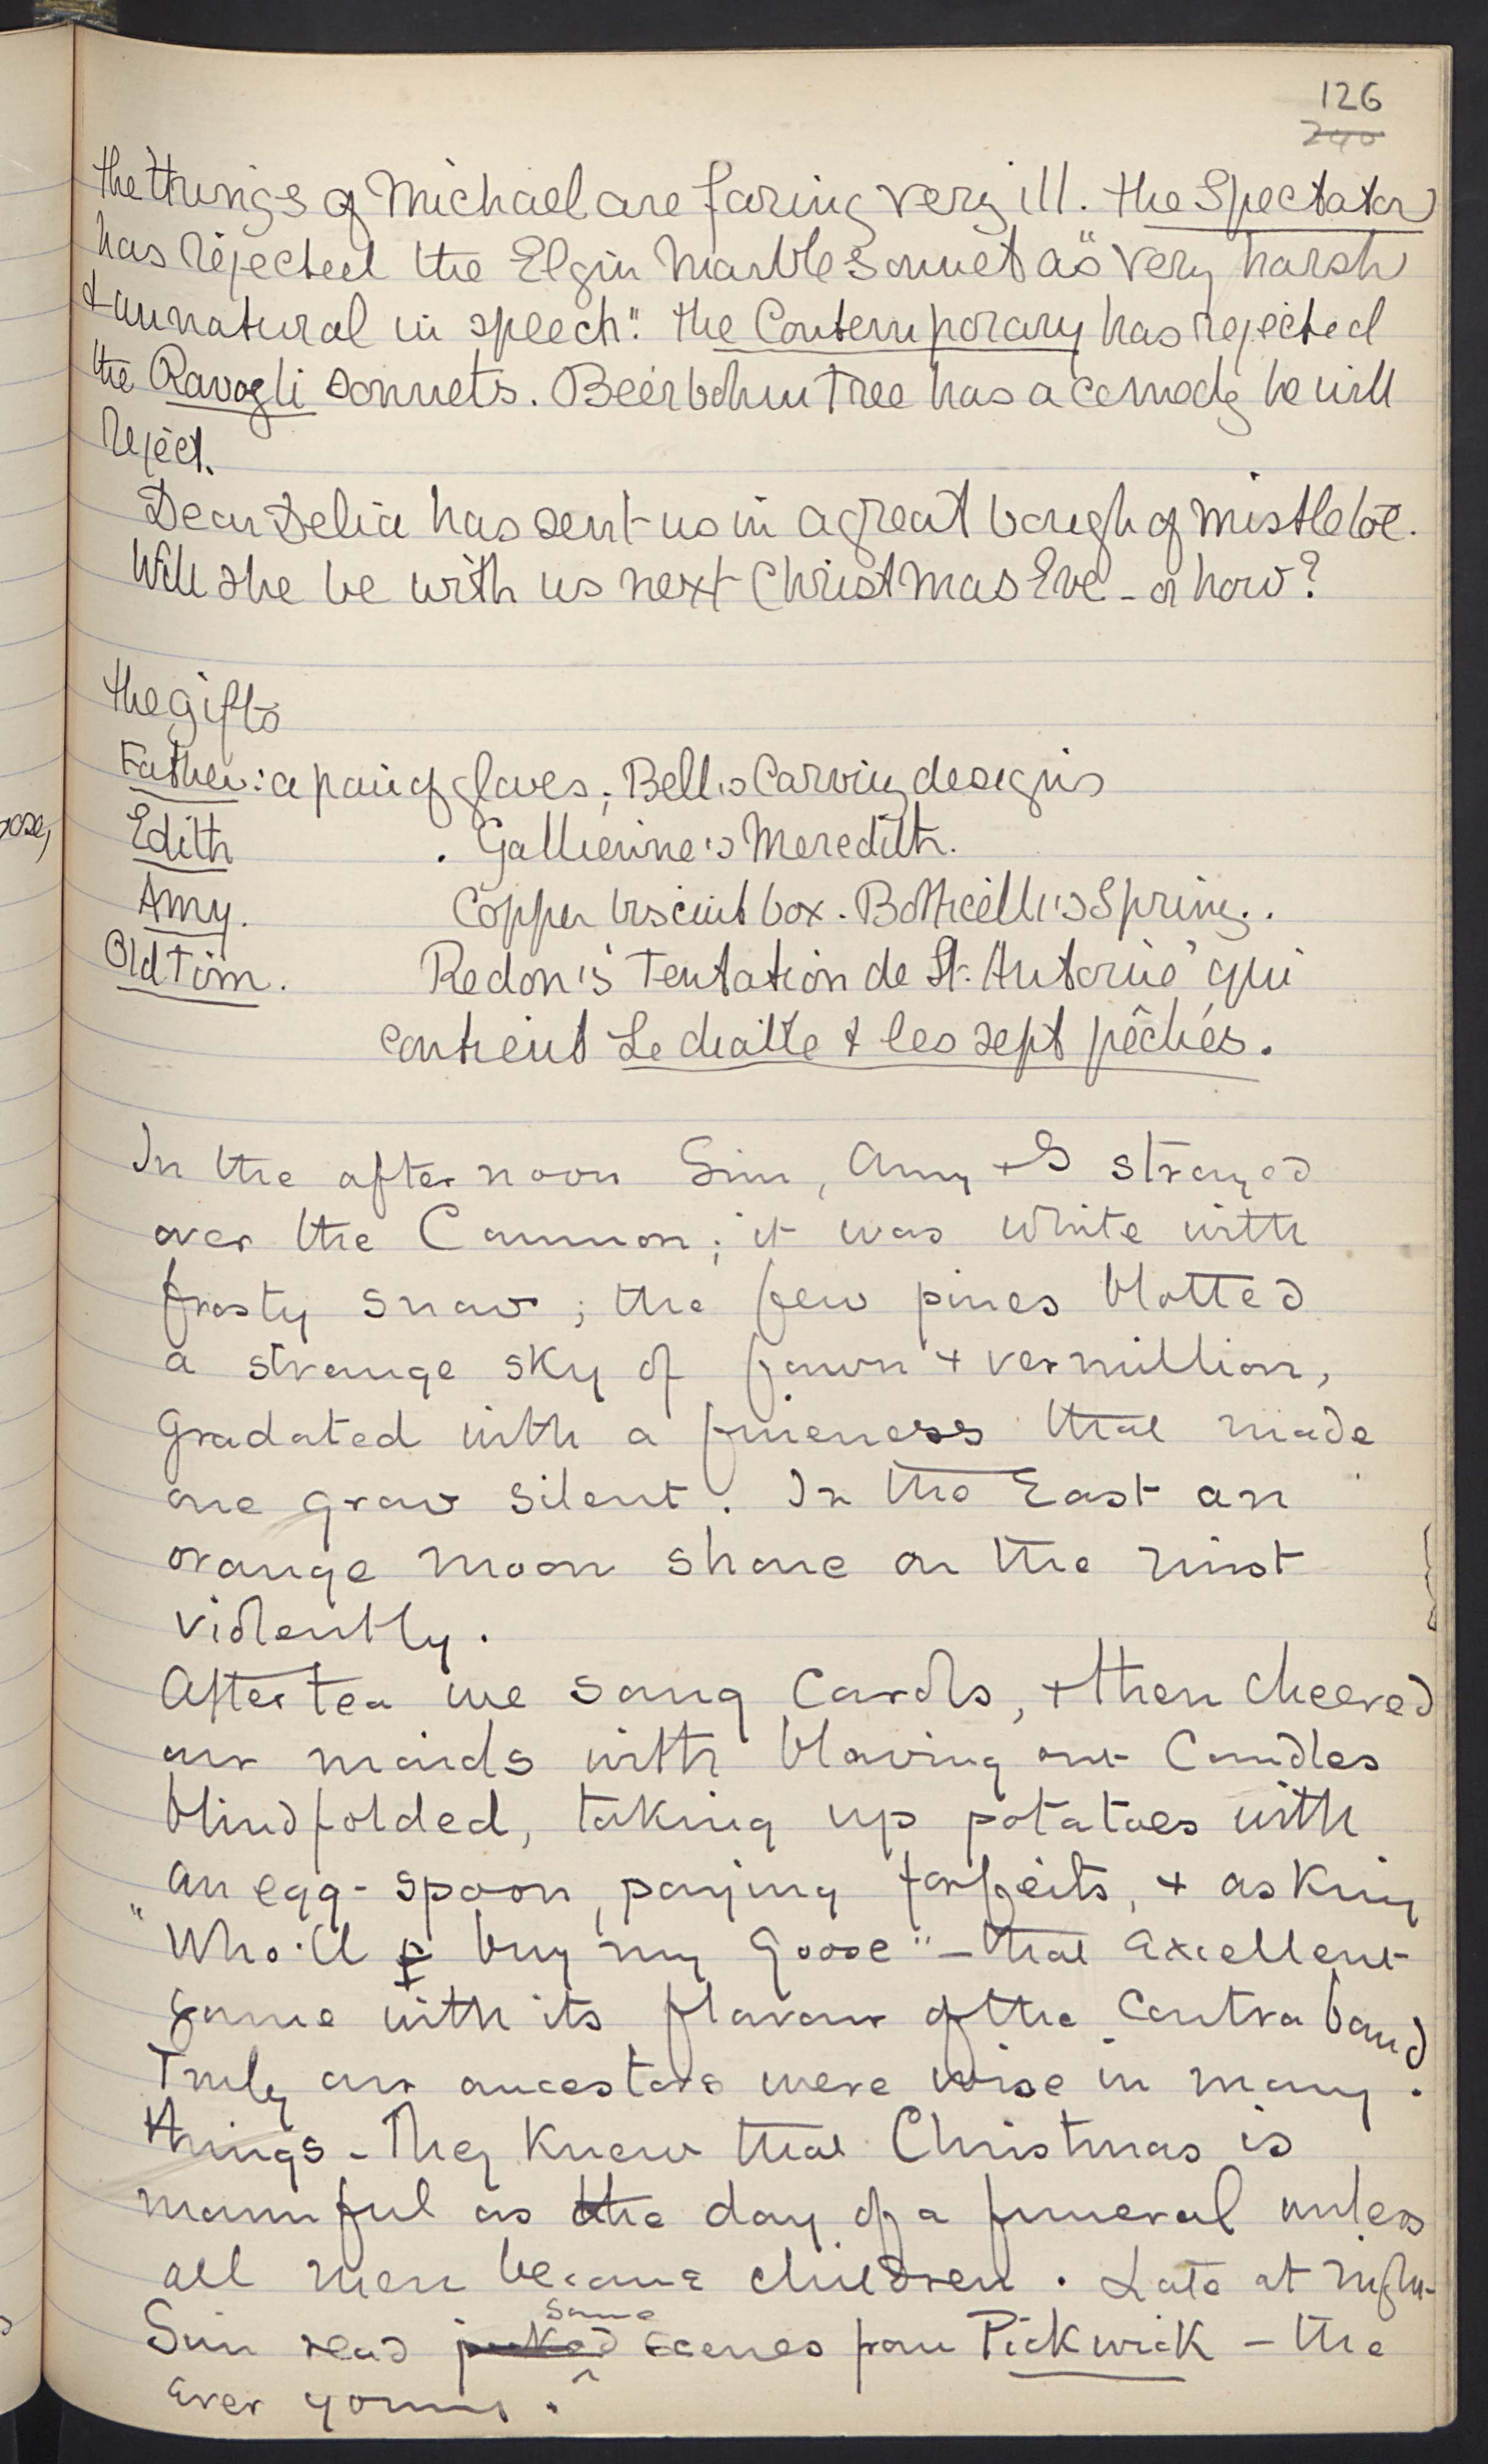 126
240
The things of Michael are faring very ill. The Spectator
has rejected the Elgin Marble sonnet as "very harsh
& unnatural in speech". The Contemporary has rejected
the Ravogli sonnets. Beerbohm Tree has a comedy he will
reject.
Dear Delia has sent us in a great bough of mistletoe.
Will she be with us next Christmas Eve - or how?
The gifts
Father: a pair of gloves; Bell's Carving designs
Edith . Gallienne's Meredith.
Amy. Copper biscuit box. Botticelli's Spring..
Old Tim. Redon's Tentation de St. Antoine" qui
contient Le diable & les sept pêchés.
In the afternoon Sim, Amy & I strayed
over the Common; it was white with
frosty snow; the few pines blotted
a strange sky of fawn & vermillion,
gradated with a fineness that made
one grow silent. In the East an
orange moon shone on the mist
violently.
After tea we sang Carols, & then cheered
our maids with blowing out Candles
blindfolded, taking up potatoes with
an egg-spoon, paying forfeits, & asking
"Who'll buy my goose" - that excellent
game with its flavour of the contraband.
Truly our ancestors were wise in many
things - They knew that Christmas is
mournful as the day of a funeral unless
all men become children. Late at night
Sim read some scenes from Pickwick - the
ever young.